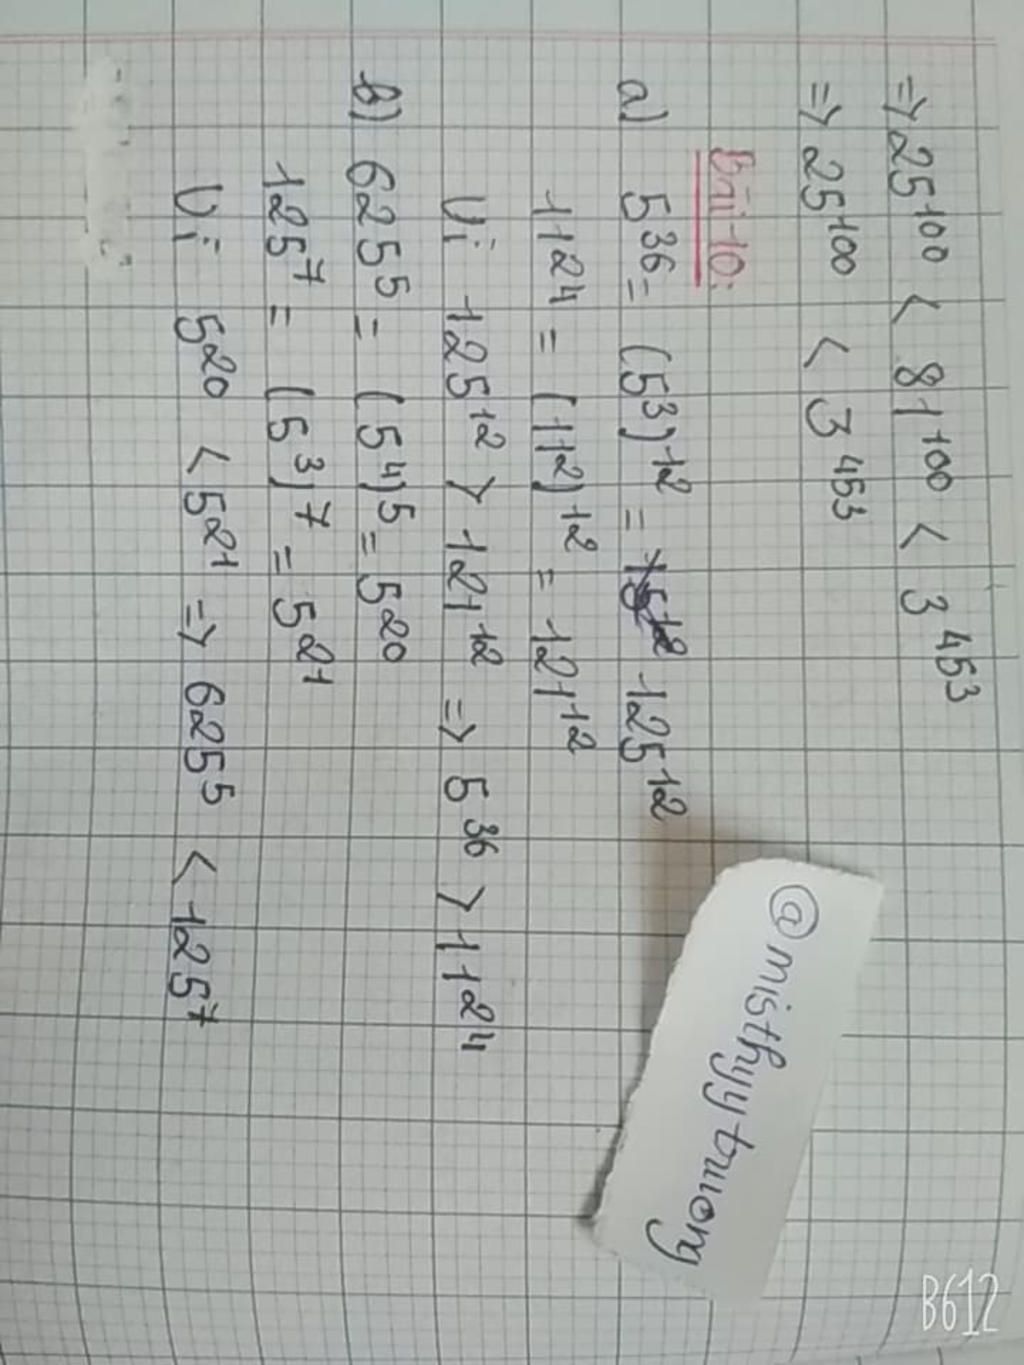 => 25¹⁰⁰ < 81¹⁰⁰ < 3⁴⁵³
=> 25¹⁰⁰ < 3⁴⁵³
Bài 10:
a) 5³⁶ = (5³)¹² = 125¹²
11²⁴ = (11²)¹² = 121¹²
Vì 125¹² > 121¹² => 5³⁶ > 11²⁴
b) 625⁵ = (5⁴)⁵ = 5²⁰
125⁷ = (5³)⁷ = 5²¹
Vì 5²⁰ < 5²¹ => 625⁵ < 125⁷
@misthyytruong
B612